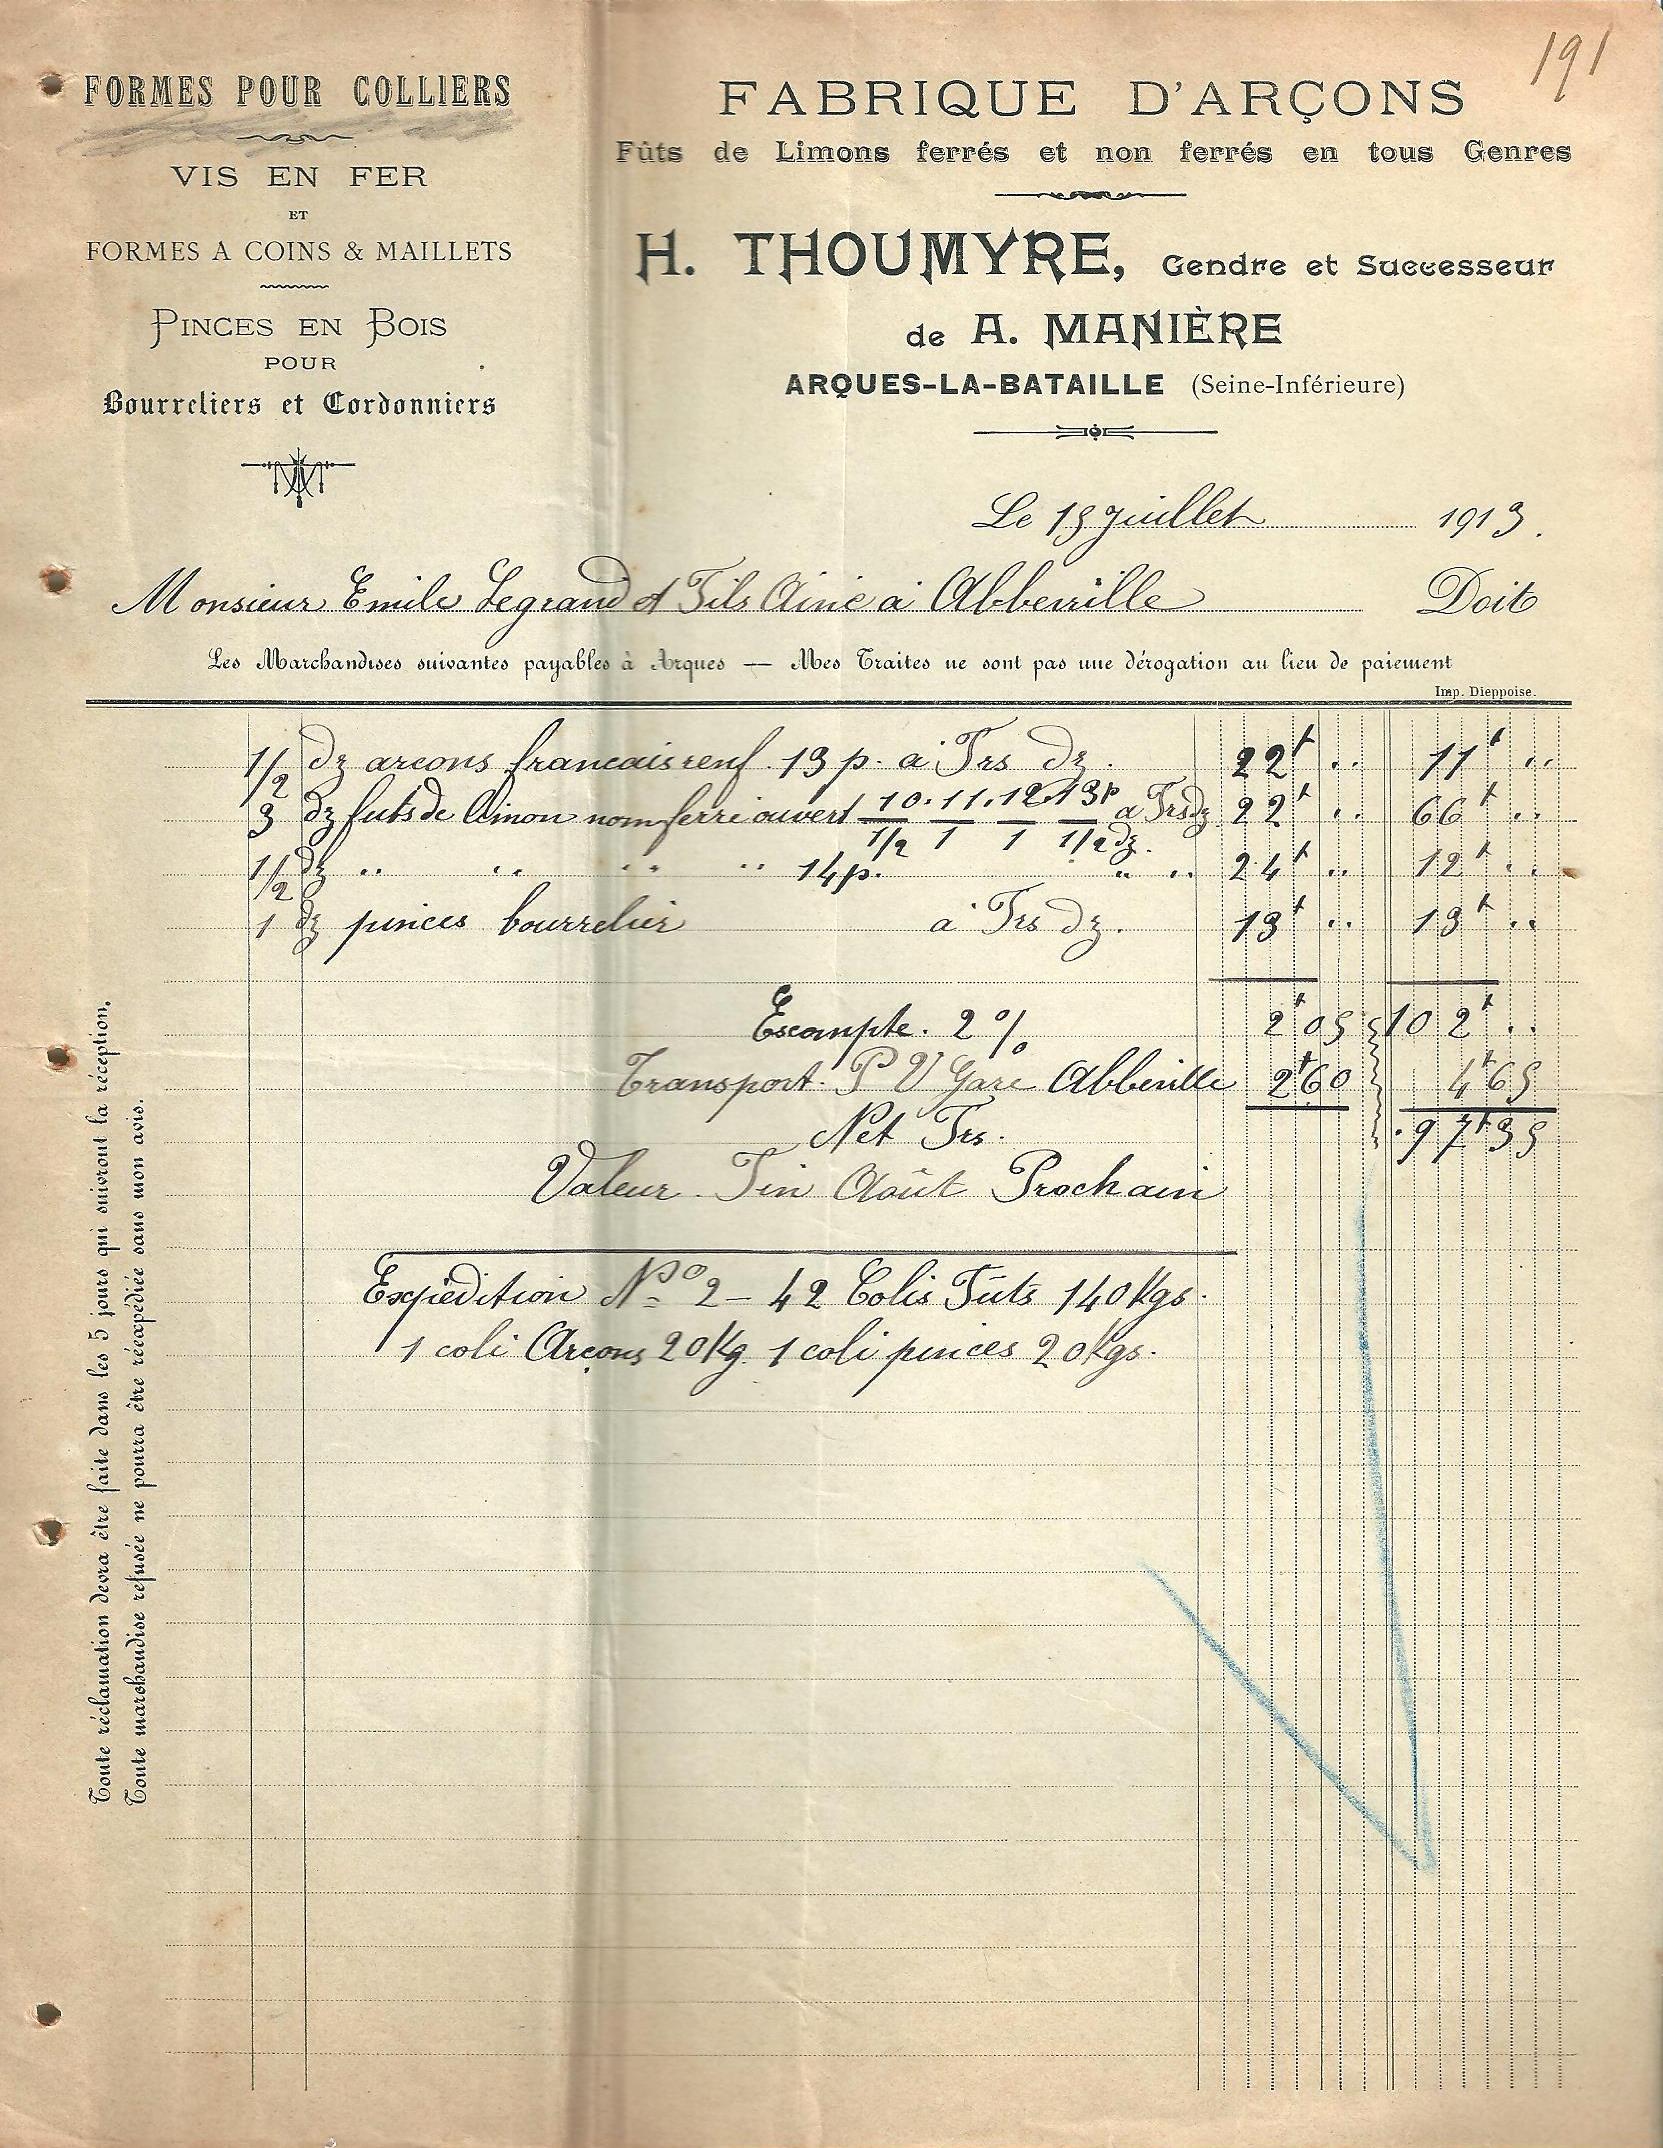 191
FORMES POUR COLLIERS
VIS EN FER
ET
FORMES A COINS & MAILLETS
PINCES EN BOIS
POUR
Bourreliers et Cordonniers
FABRIQUE D'ARÇONS
Fûts de Limons ferrés et non ferrés en tous Genres
H. THOUMYRE, Gendre et Successeur
de A. MANIÈRE
ARQUES-LA-BATAILLE (Seine-Inférieure)
Le 15 Juillet 1913.
Monsieur Emile Legrand et Fils Ainé à Abbeville Doit
Les Marchandises suivantes payables à Arques — Mes Traites ne sont pas une dérogation au lieu de paiement
Imp. Dieppoise.
1/2 dz arcons francais renf. 13 p. à Frs dz. 22f .. 11f ..
3 dz futs de limon nom ferré ouvert 10. 11. 12. 13p à Frs dz 22f .. 66f ..
1/2 1 1 1/2 dz.
1/2 dz .. .. .. .. 14p. .. .. 24f .. 12f ..
1 dz pinces bourrelier à Frs dz. 13f .. 13f ..
Escompte. 2 % 2f05 102f ..
Transport. P V Gare Abbeville 2f60 4f65
Net Frs. 97f35
Valeur Fin Août Prochain
Expédition No 2 - 42 Colis Fûts 140 Kgs.
1 coli Arçons 20 Kg. 1 coli pinces 20 Kgs.
Toute réclamation devra être faite dans les 5 jours qui suivront la réception.
Toute marchandise refusée ne pourra être réexpédiée sans mon avis.